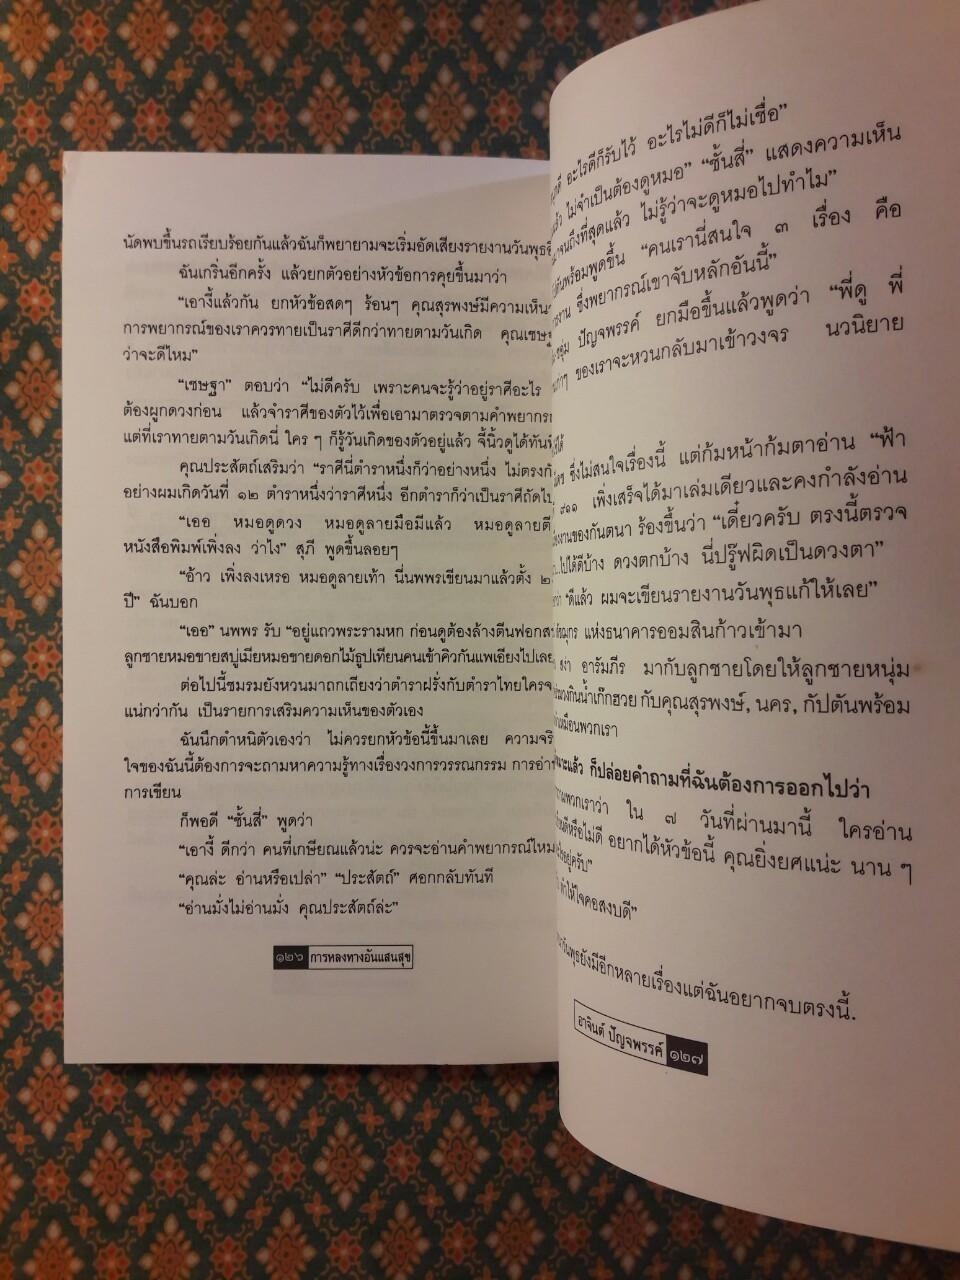 นัดพบขึ้นรถเรียบร้อยกันแล้วฉันก็พยายามจะเริ่มอัดเสียงรายงานวันพุธ
ฉันเกริ่นอีกครั้ง แล้วยกตัวอย่างหัวข้อการคุยขึ้นมาว่า
“เอางี้แล้วกัน ยกหัวข้อสดๆ ร้อนๆ คุณสุรพงษ์มีความเห็น
การพยากรณ์ของเราควรทายเป็นราศีดีกว่าทายตามวันเกิด คุณเชษฐ
ว่าจะดีไหม”
“เชษฐา” ตอบว่า “ไม่ดีครับ เพราะคนจะรู้ว่าอยู่ราศีอะไร
ต้องผูกดวงก่อน แล้วจำราศีของตัวไว้เพื่อเอามาตรวจตามคำพยากรณ
แต่ที่เราทายตามวันเกิดนี่ ใคร ๆ ก็รู้วันเกิดของตัวอยู่แล้ว จี้นิ้วดูได้ทัน
คุณประสัตถ์เสริมว่า “ราศีนี่ตำราหนึ่งก็ว่าอย่างหนึ่ง ไม่ตรงกั
อย่างผมเกิดวันที่ ๑๒ ตำราหนึ่งว่าราศีหนึ่ง อีกตำราก็ว่าเป็นราศีถัดไป
“เออ หมอดูดวง หมอดูลายมือมีแล้ว หมอดูลายตี
หนังสือพิมพ์เพิ่งลง ว่าไง” สุภี พูดขึ้นลอยๆ
“อ้าว เพิ่งลงเหรอ หมอดูลายเท้า นี่นพพรเขียนมาแล้วตั้ง ๒
ปี” ฉันบอก
“เออ” นพพร รับ “อยู่แถวพระรามหก ก่อนดูต้องล้างตีนฟอกส
ลูกชายหมอขายสบู่เมียหมอขายดอกไม้ธูปเทียนคนเข้าคิวกันแพเอียงไปเลย
ต่อไปนี้ชมรมยังหวนมาถกเถียงว่าตำราฝรั่งกับตำราไทยใครจ
แน่กว่ากัน เป็นรายการเสริมความเห็นของตัวเอง
ฉันนึกตำหนิตัวเองว่า ไม่ควรยกหัวข้อนี้ขึ้นมาเลย ความจริ
ใจของฉันนี้ต้องการจะถามหาความรู้ทางเรื่องวงการวรรณกรรม การอ่าน
การเขียน
ก็พอดี “ชั้นสี่” พูดว่า
“เอางี้ ดีกว่า คนที่เกษียณแล้วน่ะ ควรจะอ่านคำพยากรณ์ไหม
“คุณล่ะ อ่านหรือเปล่า” “ประสัตถ์” ศอกกลับทันที
“อ่านมั่งไม่อ่านมั่ง คุณประสัตถ์ล่ะ”
๑๒๖ การหลงทางอันแสนสุข
อะไรดีก็รับไว้ อะไรไม่ดีก็ไม่เชื่อ”
ไม่จำเป็นต้องดูหมอ” “ชั้นสี่” แสดงความเห็น
จนถึงที่สุดแล้ว ไม่รู้ว่าจะดูหมอไปทำไม”
พร้อมพูดขึ้น “คนเรานี่สนใจ ๓ เรื่อง คือ
ซึ่งพยากรณ์เขาจับหลักอันนี้”
ปัญจพรรค์ ยกมือขึ้นแล้วพูดว่า “พี่ดู พี่
ของเราจะหวนกลับมาเข้าวงจร นวนิยาย
ได้
ซึ่งไม่สนใจเรื่องนี้ แต่ก้มหน้าก้มตาอ่าน “ฟ้า
๙๑๑ เพิ่งเสร็จได้มาเล่มเดียวและคงกำลังอ่าน
งานของกันตนา ร้องขึ้นว่า “เดี๋ยวครับ ตรงนี้ตรวจ
...ไปได้ดีบ้าง ดวงตกบ้าง นี่ปรู๊ฟผิดเป็นดวงตา”
“ดีแล้ว ผมจะเขียนรายงานวันพุธแก้ให้เลย”
แห่งธนาคารออมสินก้าวเข้ามา
สง่า อารัมภีร มากับลูกชายโดยให้ลูกชายหนุ่ม
วงกินน้ำเก๊กฮวย กับคุณสุรพงษ์, นคร, กัปตันพร้อม
เหมือนพวกเรา
แล้ว ก็ปล่อยคำถามที่ฉันต้องการออกไปว่า
พวกเราว่า ใน ๗ วันที่ผ่านมานี้ ใครอ่าน
ดีหรือไม่ดี อยากได้หัวข้อนี้ คุณยิ่งยศแน่ะ นาน ๆ
อยู่ครับ”
ทำให้ใจคอสงบดี”
พุธยังมีอีกหลายเรื่องแต่ฉันอยากจบตรงนี้.
อาจินต์ ปัญจพรรค์ ๑๒๗